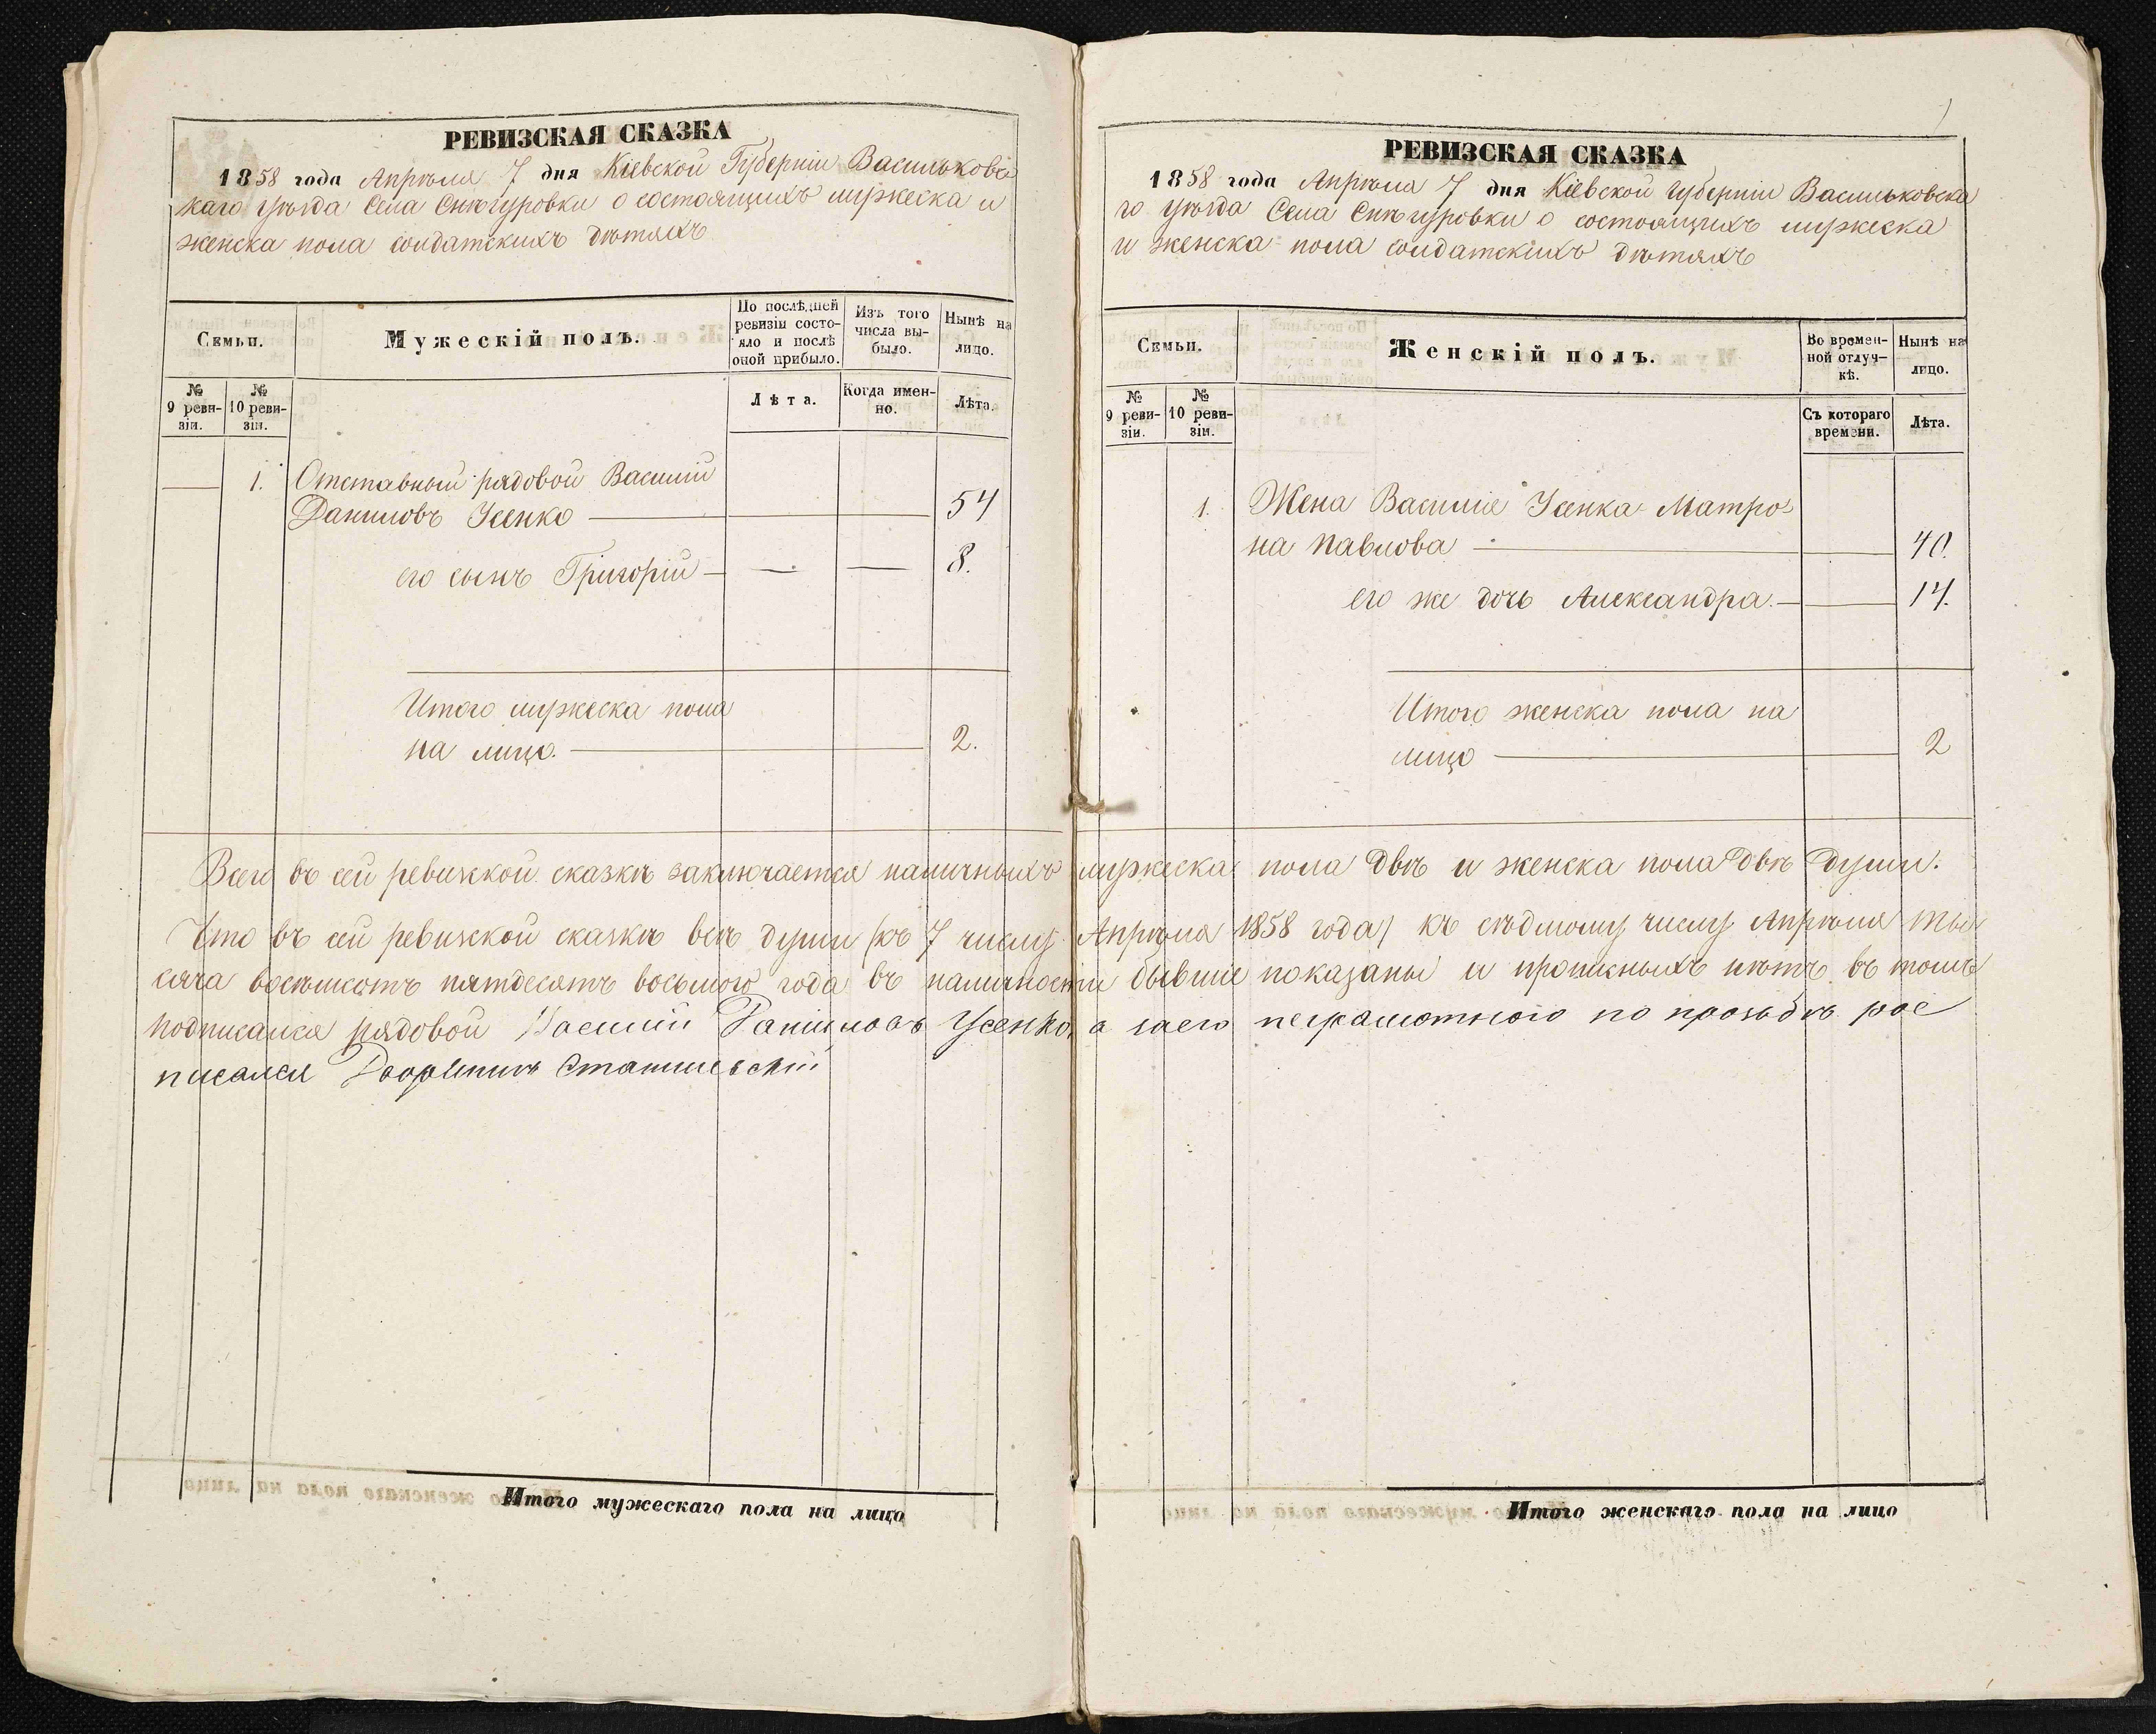 РЕВИЗСКАЯ СКАЗКА
1858 года Апрѣля 7 дня Кіевской Губерніи Васильковс
каго уѣзда Села Снѣгуровки о состоящихъ мужеска и
женска пола солдатскихъ дѣтяхъ
Семьи.
Мужескій полъ.
По послѣдней ревизіи состо-
яло и послѣ оной прибыло.
Изъ того числа вы-
было.
Нынѣ на лицо.
№ 9 реви-
зіи.
№ 10 реви-
зіи.
Лѣта.
Когда имен-
но.
Лѣта.
1. Отставный рядовой Василій
Даниловъ Усенко 54
его сынъ Григорій 8.
Итого мужеска пола
на лицо. 2.
РЕВИЗСКАЯ СКАЗКА
1858 года Апрѣля 7 дня Кіевской Губерніи Васильковска
го уѣзда Села Снѣгуровки о состоящихъ мужеска
и женска пола солдатскихъ дѣтяхъ
Семьи.
Женскій полъ.
Во времен-
ной отлуч-
кѣ.
Нынѣ на лицо.
№ 9 реви-
зіи.
№ 10 реви-
зіи.
Съ котораго
времени.
Лѣта.
1. Жена Василія Усенка Матро
на Павлова 40.
его же дочь Александра. 14.
Итого женска пола на
лицо 2
Всего въ сей ревизской сказкѣ заключается наличныхъ мужеска пола двѣ и женска пола двѣ души.
Что въ сей ревизской сказкѣ всѣ души (къ 7 числу Апрѣля 1858 года) къ сѣдмому числу Апрѣля тыс
сяча восѣмсотъ пятдесятъ восьмого года въ наличности бывшіе показаны и прописныхъ нѣтъ въ томъ
подписался рядовой Василій Даниловъ Усенко, а заего неграмотного по прозьбѣ рос
писался Дворянинъ Станишевскій
Итого мужескаго пола на лицо
Итого женскаго пола на лицо